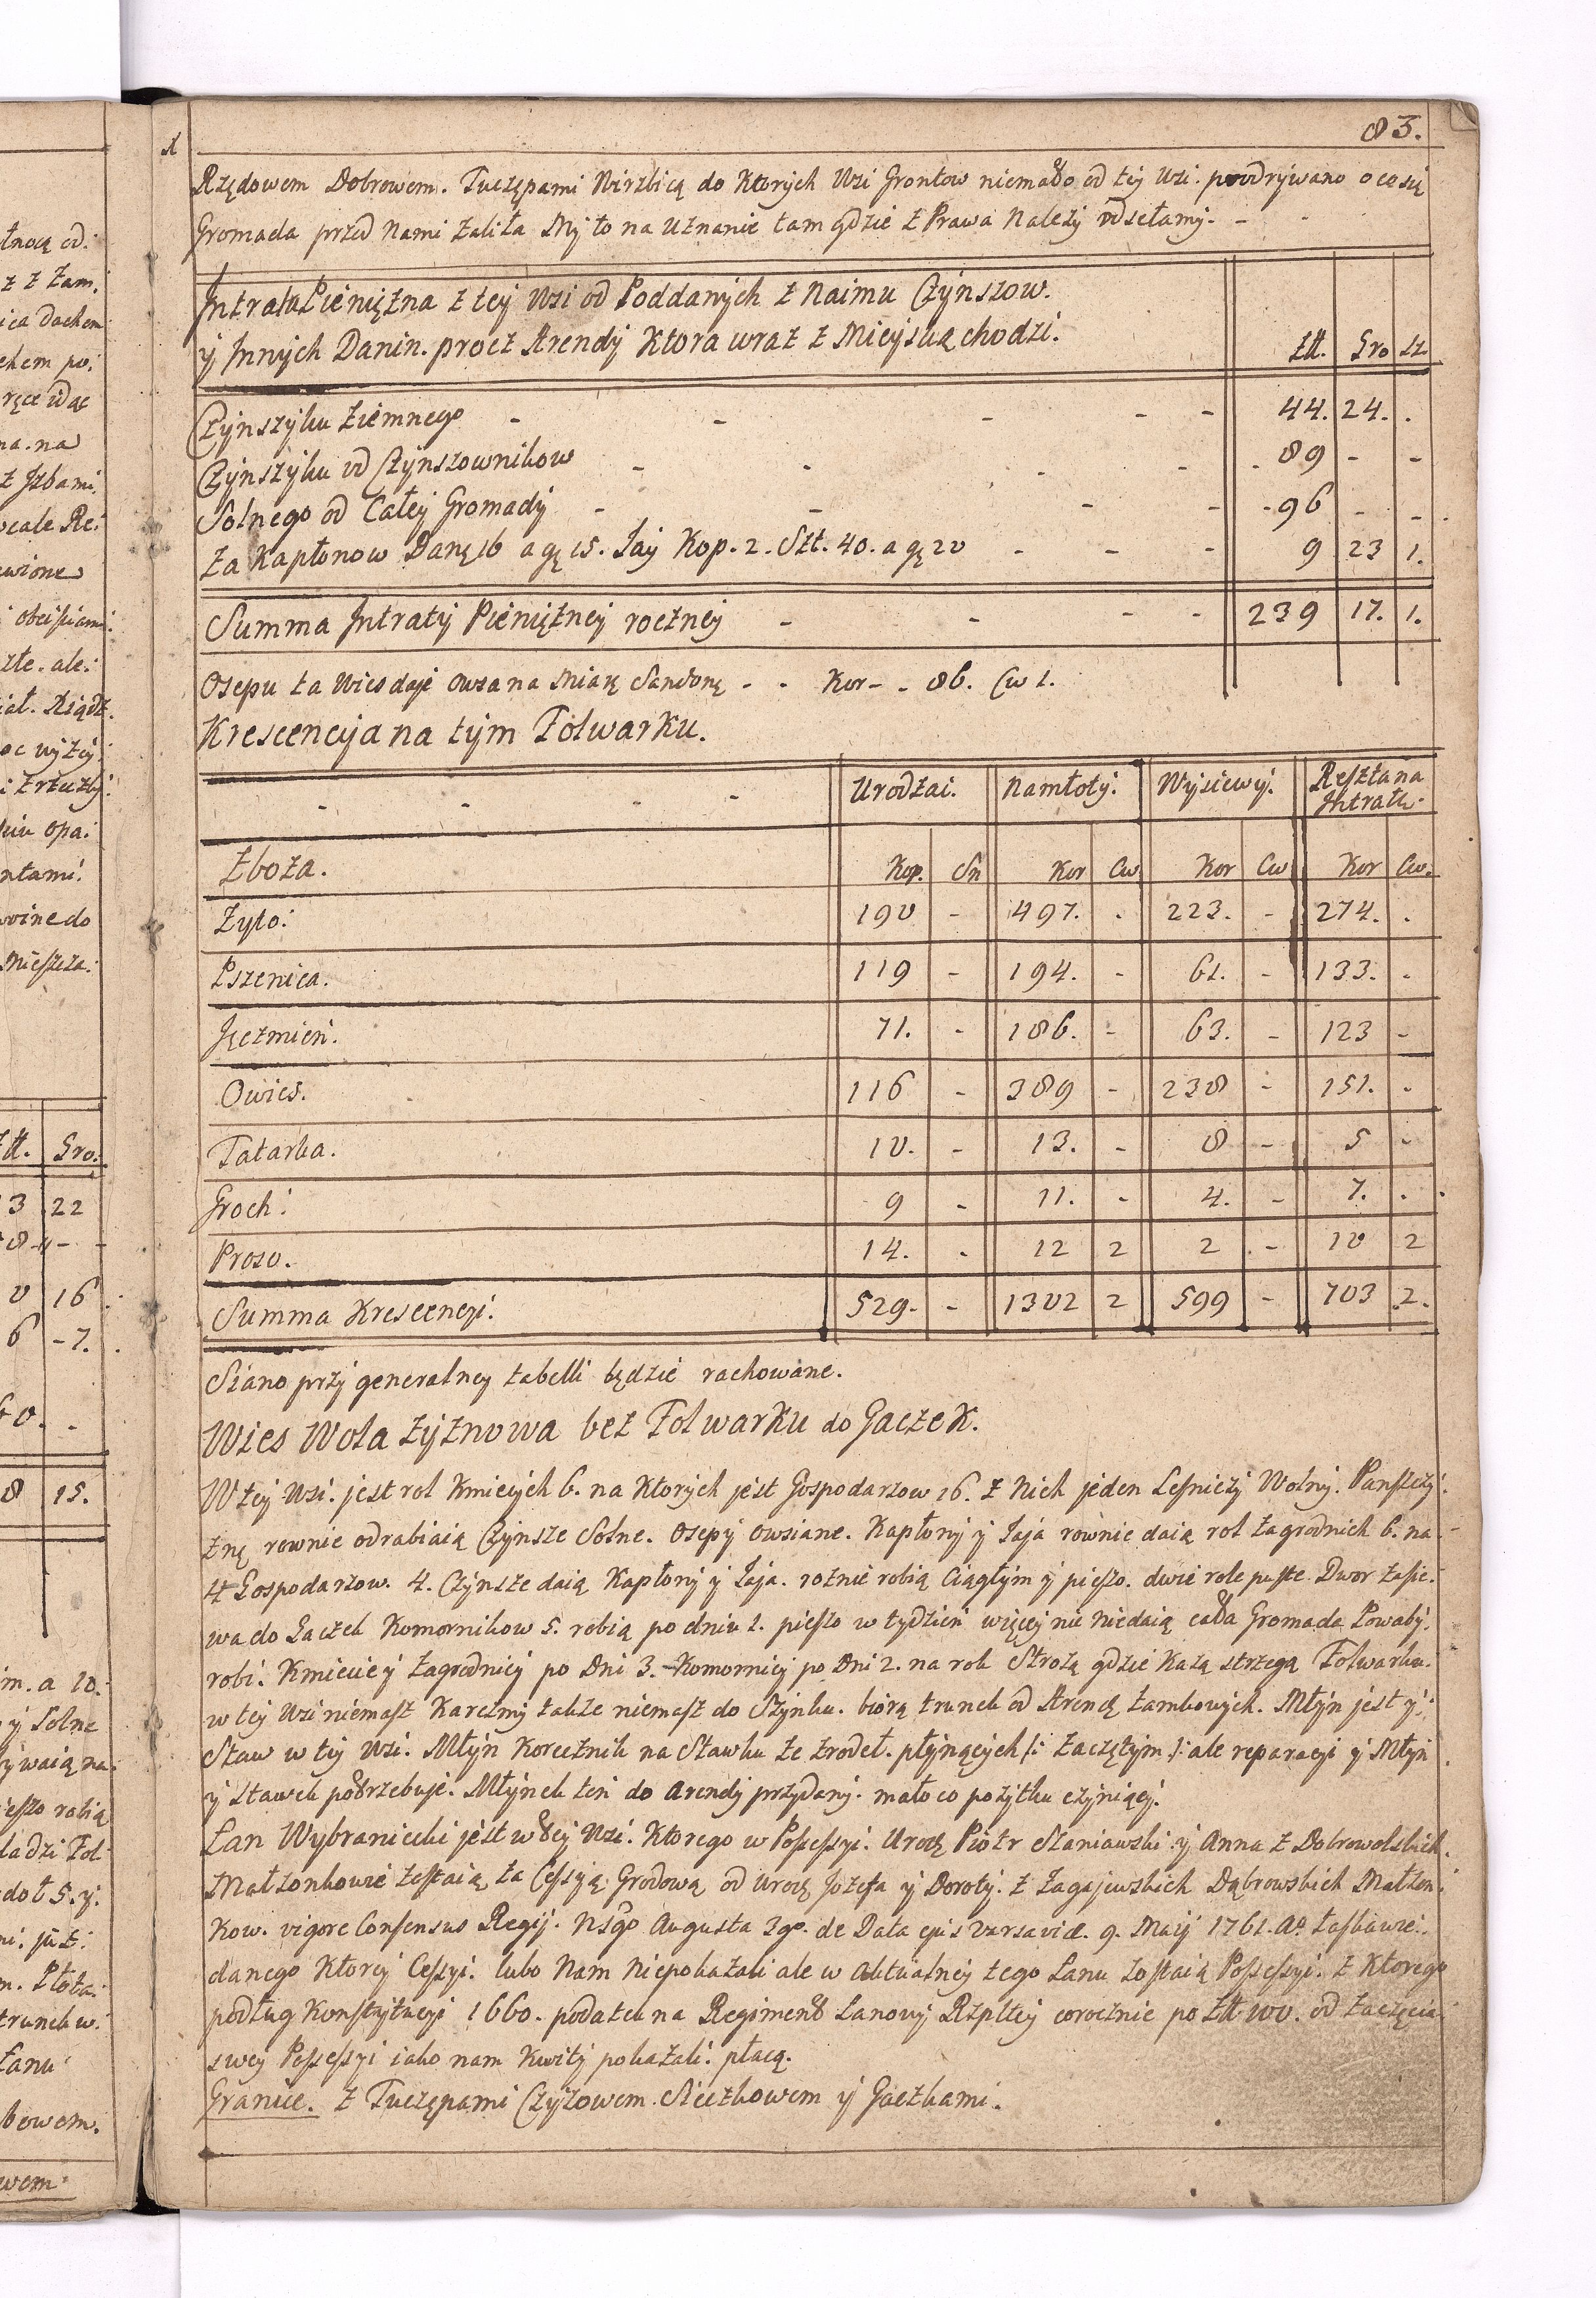 83.
Rzędowem Dobrowem. Tuczępami Wirzbicą do Ktorych Wsi Grontow niemało od tey Wsi. poodrywano o co się
Gromada przed Nami Zaliła My to na Uznanie tam gdzie z Prawa Nalezy odsełamy. -
Intrata Pieniężna z tey Wsi od Poddanych z Naimu Czynszow.
y Innych Danin. procz Arendy Ktora wraz z Mieyską chodzi.
Zł. Gro sz.
Czynszyku Ziemnego - - - - - 44. 24. .
Czynszyku od Czynszownikow - - - - 89 - -
Solnego od Całey Gromady - - - - 96 - -
Za Kapłonow Danę 16 a gę 15. Jay Kop. 2. Szt. 40. a gę 20 - - - 9 23 1.
Summa Intraty Pieniężney roczney - - - - 239 17. 1.
Osepu ta Wies daje Owsa na Miarę Sandonę - - Kor - . 86. Cw 1.
Krescencyja na tym Folwarku.
Urodzai. Namłoty. Wysiewy. Reszta na Intratę.
Zboza. Kop. Sn Kor Cw Kor Cw Kor Cw.
Zyto: 190 - 497. . 223. - 274. .
Pszenica. 119 - 194. - 61. - 133. -
Jęczmień. 71. - 186. - 63. - 123 -
Owies. 116 - 389 - 238 - 151. -
Tatarka. 10. - 13. - 8 - 5 -
Groch: 9 - 11. - 4. - 7. .
Proso. 14. - 12 2 2 - 10 2
Summa Krescencyi. 529. - 1302 2 599 - 703 .2.
Siano przy generalney tabelli będzie rachowane.
Wies Wola Zyznowa bez Folwarku do Gaczek.
W tey Wsi. jest rol Kmiecych 6. na Ktorych jest Gospodarzow 16. z Nich jeden Leśniczy Wolny. Panszczy:
znę rownie odrabiaią Czynsze Solne. Osepy Owsiane. Kapłony y Jaja rownie daią rol Zagrodnich 6. na
4 Gospodarzow. 4. Czynsze daią Kapłony y Jaja. roznie robią Ciągłym y pieszo. dwie role puste Dwor Zasie:
wa do Gaczek Komornikow 5. robią po dniu 1. pieszo w tydzień więcey nic niedaią cała Gromada Powaby.
robi. Kmiecie y Zagrodnicy po Dni 3. Komornicy po Dni 2. na rok Strozą gdzie Kazą strzegą Folwarku.
w tey Wsi niemasz Karczmy takze niemasz do Szynku. biorą trunek od Arendę Zamkowych. Młyn jest y
Staw w tey Wsi. Młyn Korcecznik na Stawku ze Zrodeł. płynących /: Zaczętym :/ ale reparacyi y Młyn
y Stawek potrzebuje. Młynek ten do Arendy przydany. mało co pozytku czyniący.
Łan Wybraniecki jest w tey Wsi. Ktorego w Possessyi. Urodz Piotr Staniawski y Anna z Dobrowolskich.
Małzonkowie zostaią za Cessyą Grodową od Urodz Jozefa y Doroty. z Zagajewskich Dąbrowskich Małżon:
Kow. vigore Consensus Regij. Nsgo Augusta 3go. de Data epis Varsaviæ. 9. Maij 1761. Ao łaskawie.
danego Ktorey Cessyi. lubo Nam Niepokazali ale w Aktualney tego Łanu zostaią Possessyi. z Ktorego
podług Konstytucyi 1660. podatek na Regiment Łanowy Rzpltey corocznie po Zł 100. od Zaczęcia
swey Possessyi iako nam Kwity pokazali. płacą.
Granice. z Tuczępami Czyzowem. Sieczkowem y Gaczkami.